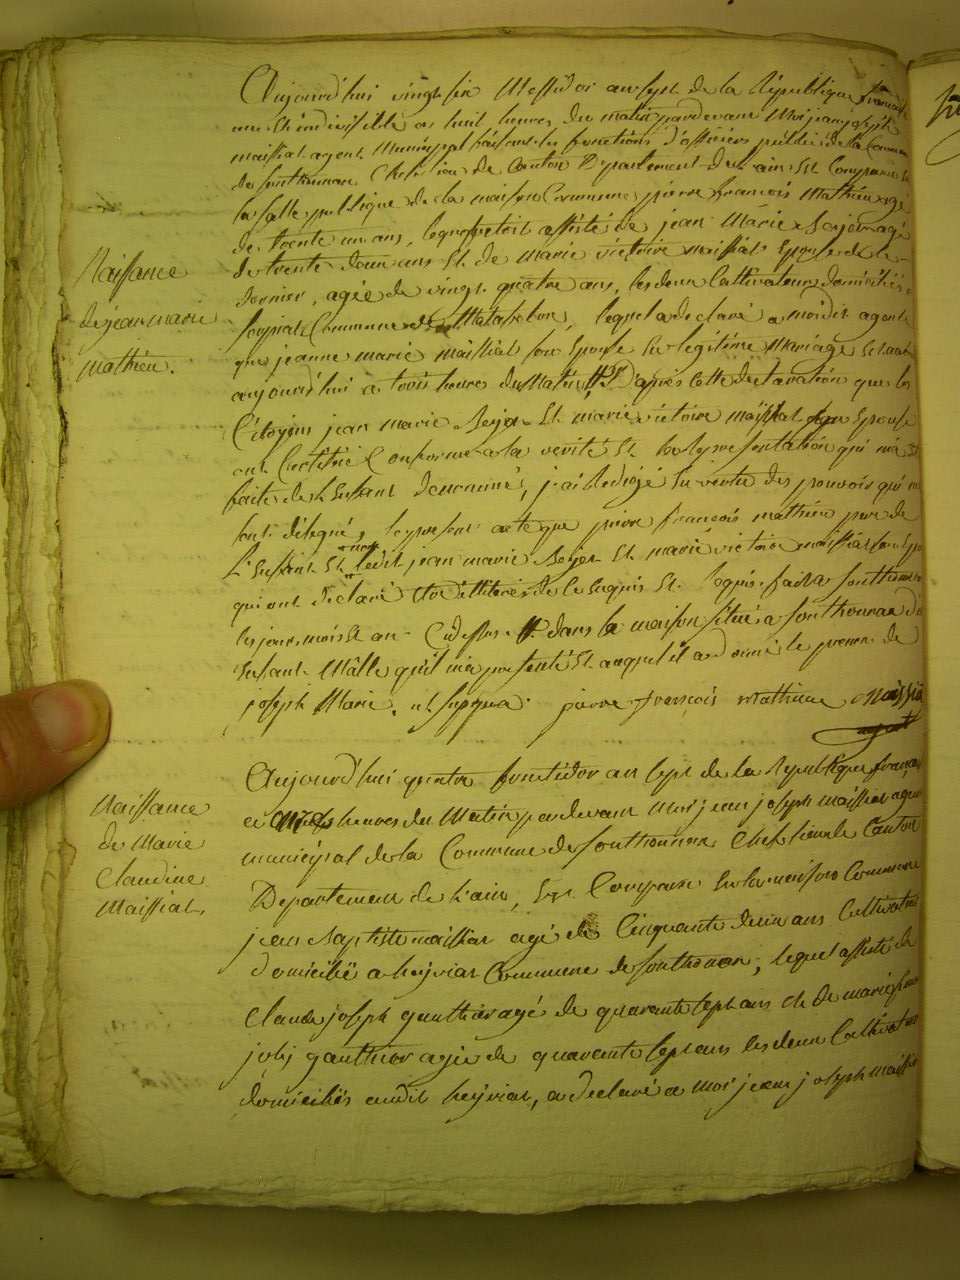 Aujourd'hui vingt six Messidor an sept de la République francaise
une et indivisible a huit heures du matin pardevant Moi jean joseph
maissiat agent Municipal faisant les fonctions d'officier public de la Commune
de Sonthonnax Chef lieu de Canton Département de l'ain Est Comparu en
la salle publique de la maison Commune pierre francois Mathieu agé
de trente un ans, lequel etoit assisté de jean Marie Reyier agé
de trente deux ans Et de Marie victoire maissiat Epouse de ce
dernier, agée de vingt quatre ans, les deux Cultivateurs domiciliés a
Commune de Matafelon, lequel a declaré a moi dit agent
que jeanne marie maissiat son Epouse En légitime Mariage
aujourd'hui a trois heures du Matin D'après cette declaration que les
Citoyens jean marie Reyer Et marie victoire maissiat son Epouse
ont Certifié Conforme a la verité Et la représentation qui m'a été
faite de L'Enfant denommé, j'ai Redigé En vertu des pouvoirs qui me
sont délégués, le present acte que pierre francois mathieu pere de
L'Enfant Et non ledit jean marie Reyer Et marie victoire maissiat son Epouse
qui ont declaré etre illiterés de ce Enquis Et Requis. fait a Sonthonnax
les jour mois Et an Cidessus. dans la maison située a Sonthonnax
Enfant Mâlle qu'il m'a presenté Et auquel il a donné le prenom de
joseph Marie. pierre francois Mathieu Maissiat
agent
Naissance
de jean marie
mathieu.
Aujourd'hui quatre fructidor an sept de la République française
a heures du Matin pardevant Moi jean joseph maissiat agent
municipal de la Commune de Sonthonnax Chef lieu de Canton
Departement de l'ain, Est Comparu En la maison Commune
jean Baptiste maissiat agé de Cinquante deux ans Cultivateur
domicilié a heyriat Commune de Sonthonax, lequel assisté de
Claude joseph gauthier agé de quarante sept ans Et de marie
gauthier agée de quarante sept ans les deux Cultivateurs
domiciliés audit heyriat, a declaré a Moi jean joseph maissiat
Naissance
de Marie
Claudine
Maissiat.